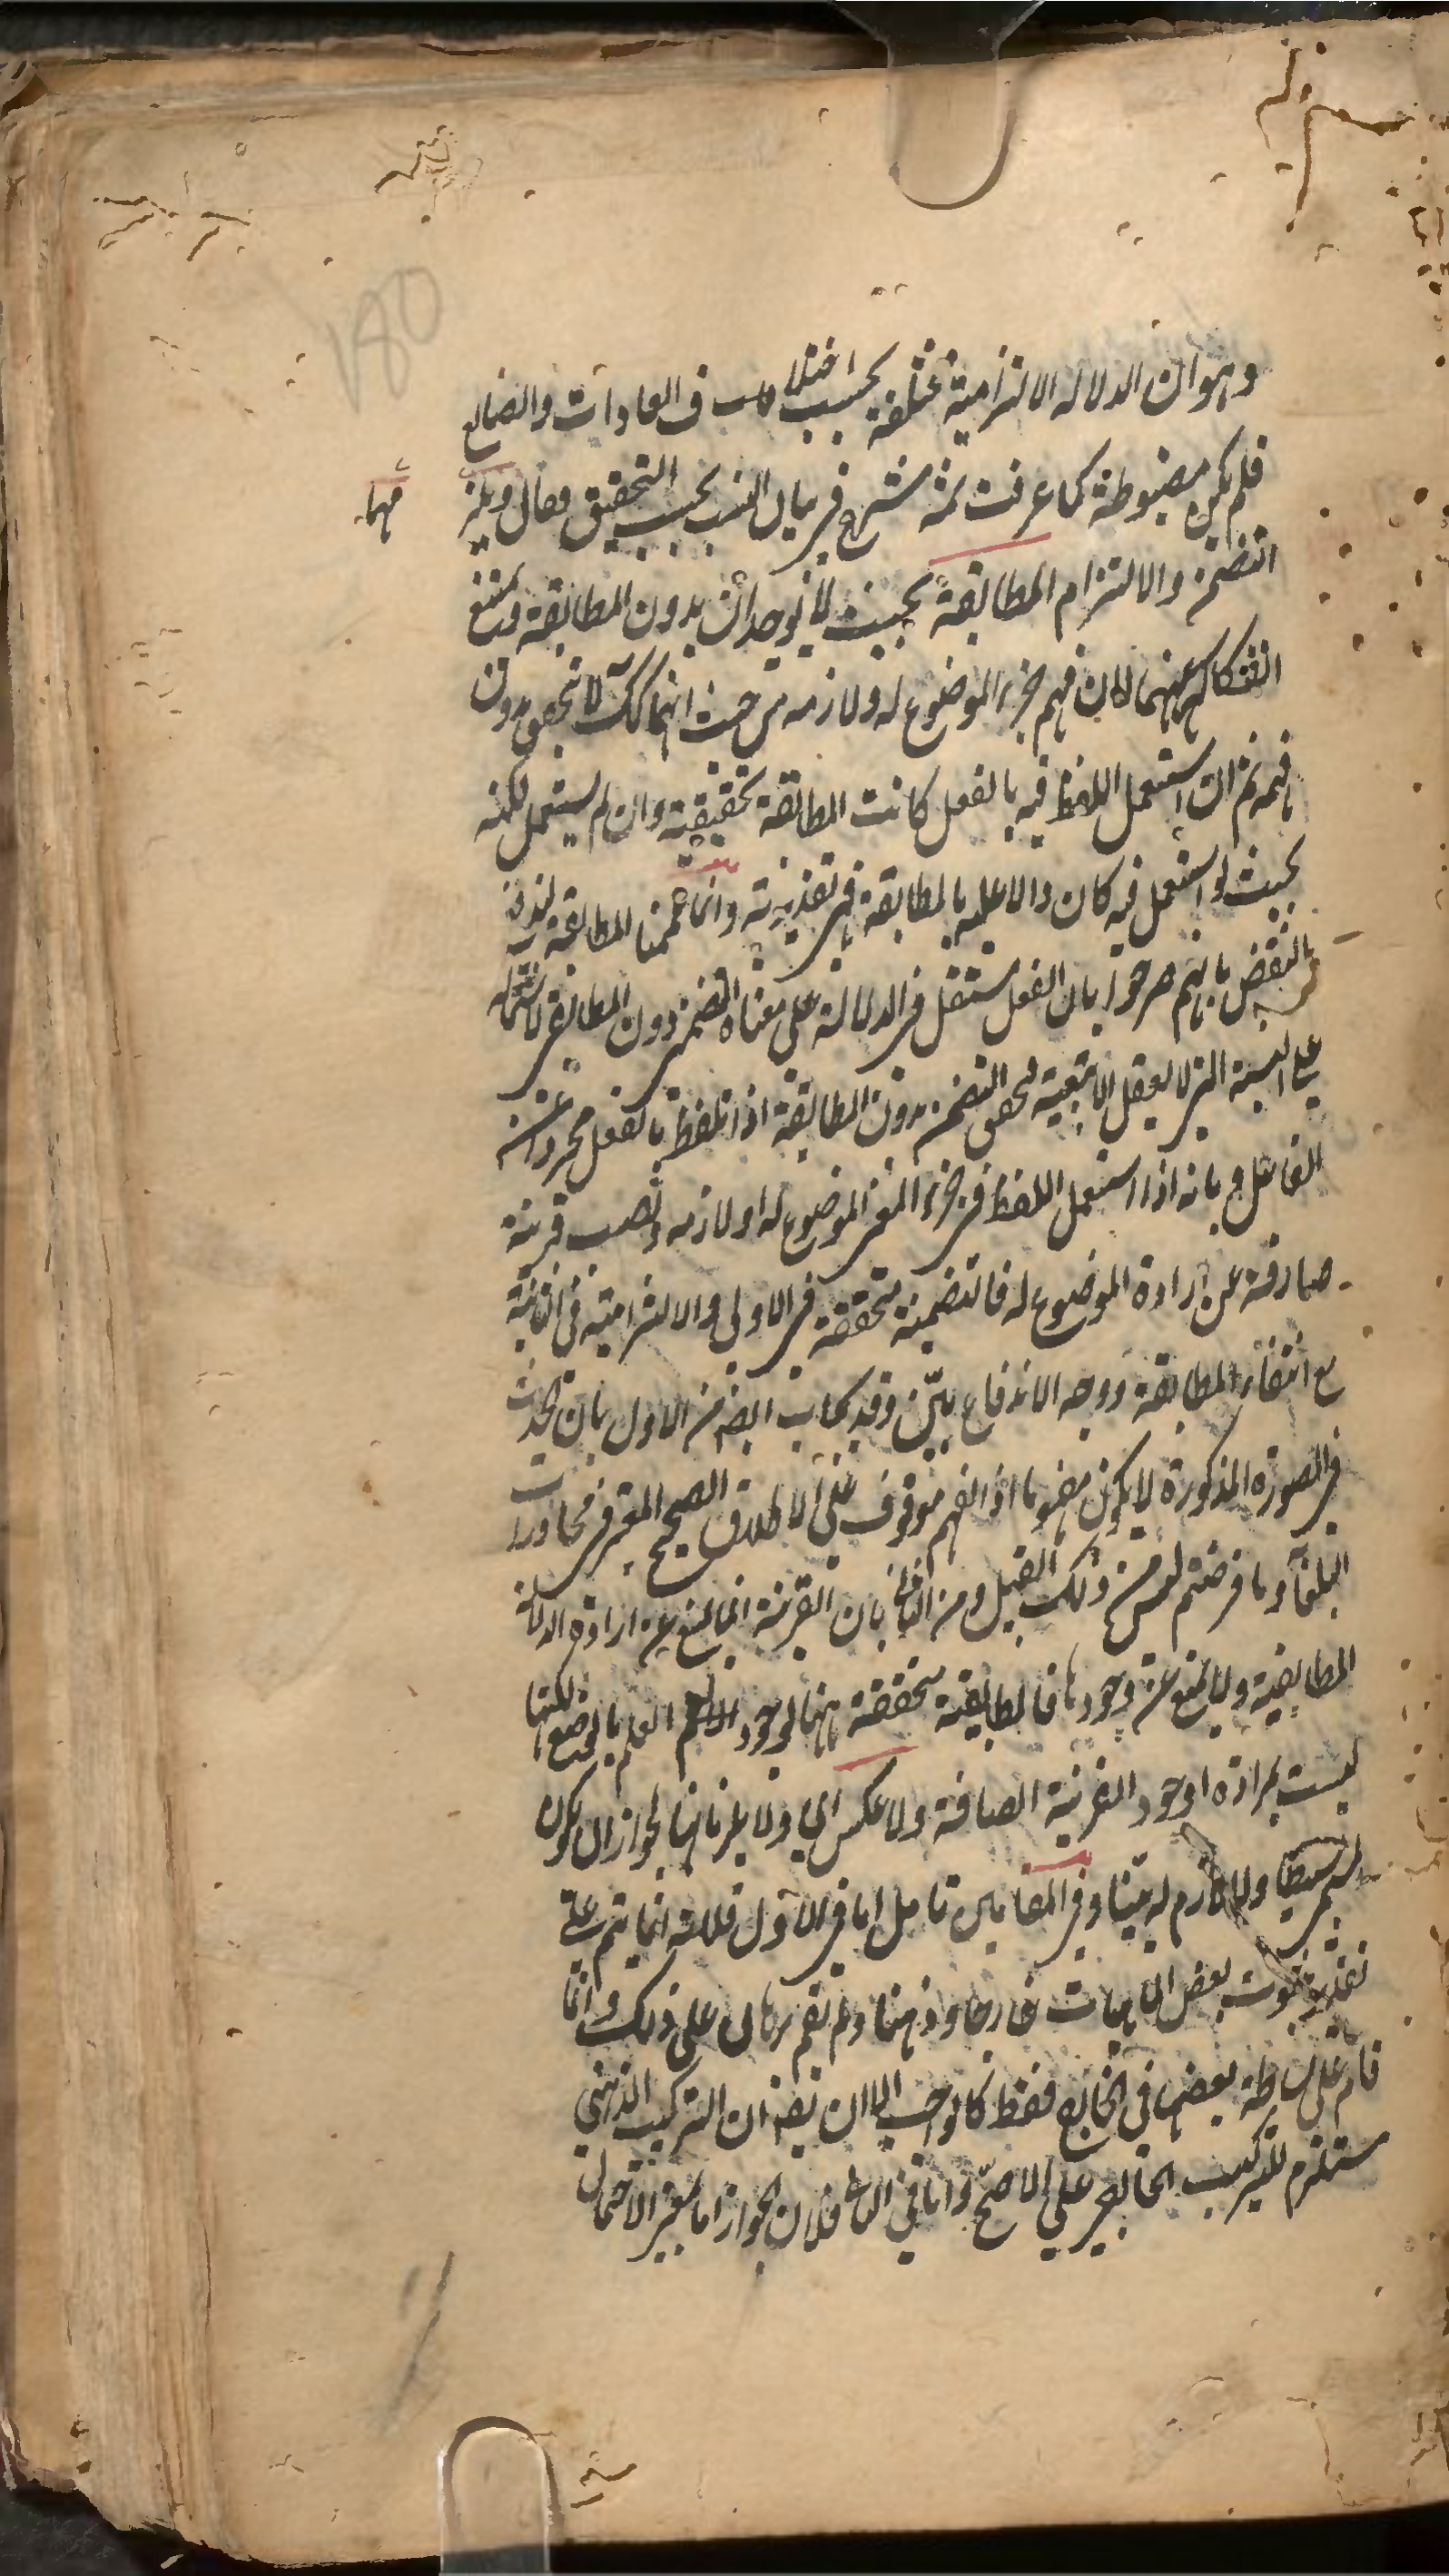 180
وهو ان الدلاله الالتزامية مختلفة بحسب اختلا ف العادات والصنايع
فلم يكن مضبوطة كما عرفت ثم شرع في بيان النسب بحسب التحقيق وقال ويلز
مهما
التضمن والالتزام المطابقة بحيث لا يوجدان بدون المطابقة ويمتنع
انفكاكهما عنها لان فهم جزء الموضوع له ولازمه من حيث انهما كك لا يتحقق بدون
فهمه ثم ان استعمل اللفظ فيه بالفعل كانت المطابقة تحقيقية وان لم يستعمل لكنه
بحيث لو استعمل فيه كان دالا عليه بالمطابقة فهي تقديرية وانما عممنا المطابقة ليندفع
النقض بانهم صرحوا بان الفعل مستقل في الدلالة على معناه التضمني دون المطابقي لاشتماله
على النسبة التي لا يعقل الا بتبعية فتحقق التضمن بدون المطابقة اذا تلفظ بالفعل مجردا عن
الفاعل وبانه اذا استعمل اللفظ في جزء المعنى الموضوع له او لازمه ونصب قرينة
صارفة عن ارادة الموضوع له فالتضمنية متحققة في الاولى والالتزامية في الثانية
مع انتفاء المطابقة ووجه الاندفاع بيّن وقد يجاب ايضا من الاول بان الحدث
في الصورة المذكورة لا يكون مفهوما اذ الفهم موقوف على الاطلاق الصحيح المعتبر في محاورات
البلغاء وما فرضتم ليس من ذلك القبيل ومن الثاني بان القرينة انما يمنع عن ارادة الدلالة
المطابقية ولا يمنع عن وجودها فالمطابقية متحققة ههنا لوجود العلم بالوضع لكنها
ليست بمرادة لوجود القرينة الصافة ولا عكس اي ولا يلزمانها لجواز ان يكون
المسمى بسيطا ولا لازم له بيّنا وفي المقامين تامل اما في الاول فلانه انما يتم على
تقدير ثبوت بعض الماهيات خارجا وذهنا ولم يقم برهان على ذلك وانما
قام على بساطة بعضها في الخارج فقط كالواجب الا ان يقال ان التركيب الذهني
مستلزم للتركيب الخارجي على الاصح واما في الثاني فلان الجواز اما بمعنى الاحتمال